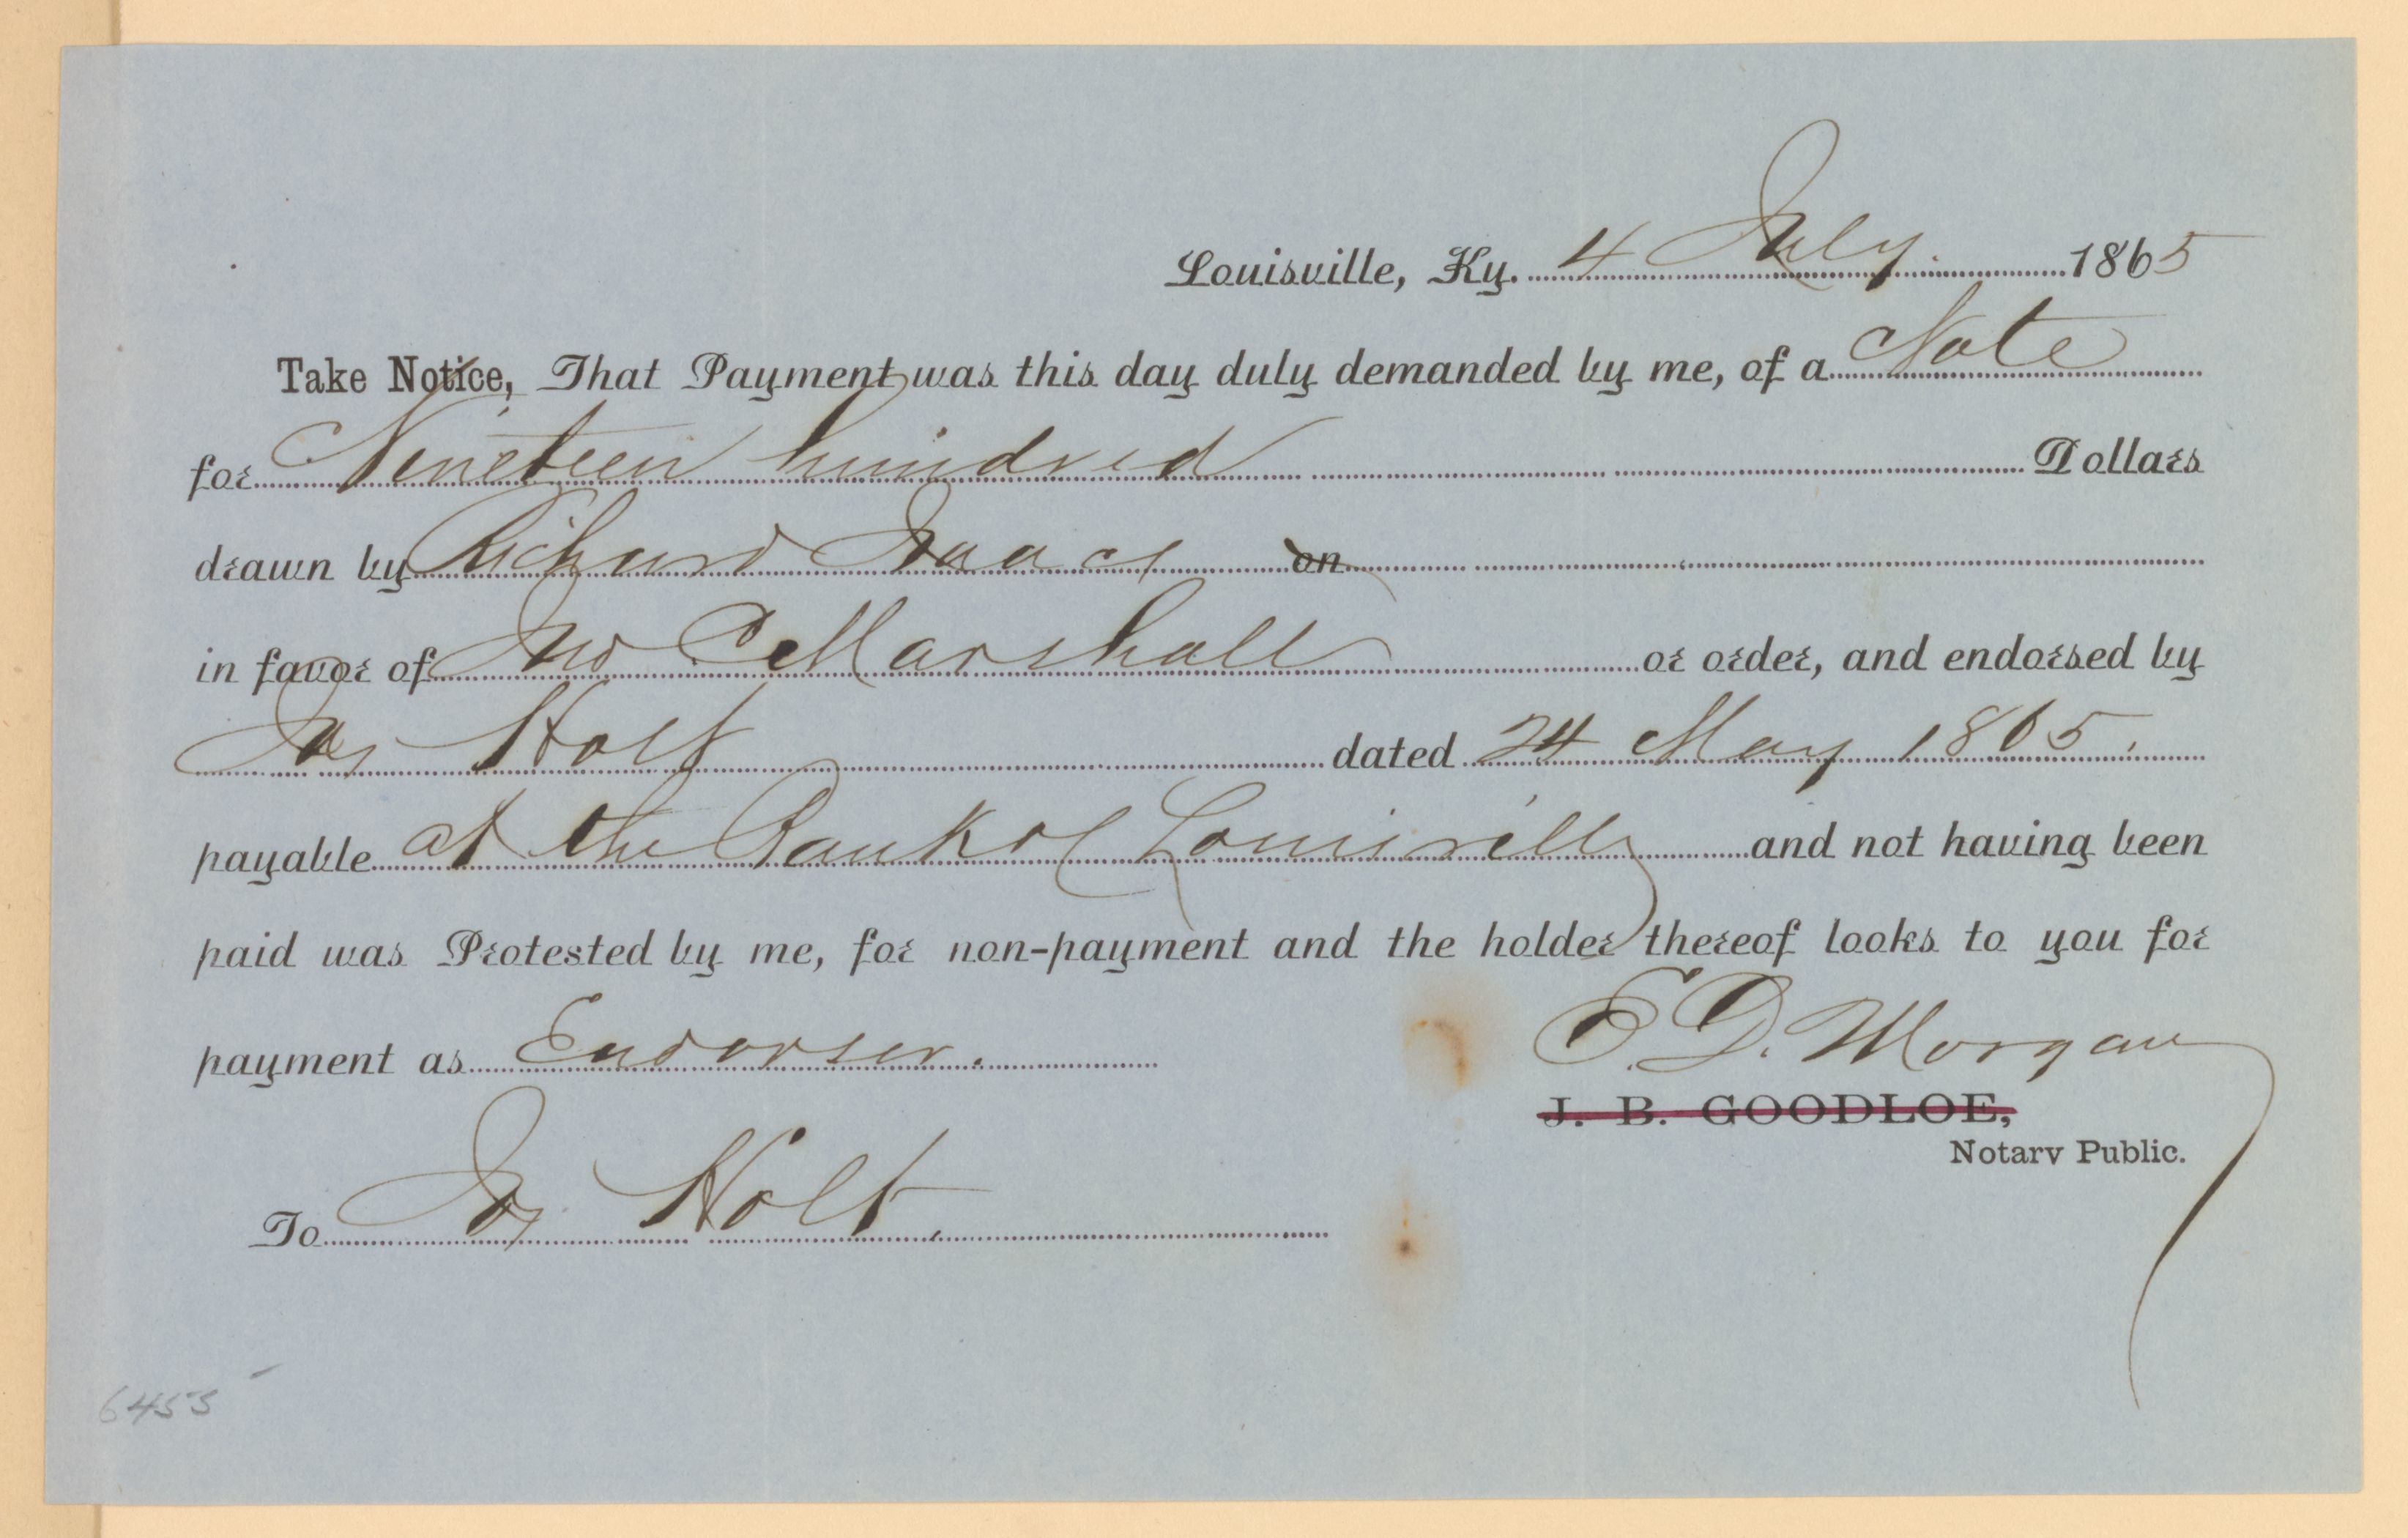 Louisville, Ky. 4 July 1865
Take Notice, That Payment was this day duly demanded by me, of a Note
for Nineteen hundred Dollars
drawn by Richard Isaacs on
in favor of Jno C Marshall or order, and endorsed by
Jos Holt dated 24 May 1865.
payable at the Bank of Louisville and not having been
paid was Protested by me, for non-payment and the holder thereof looks to you for
payment as Endorser.
E. D. Morgan
J. B. GOODLOE,
Notary Public.
To Jos Holt.
6455